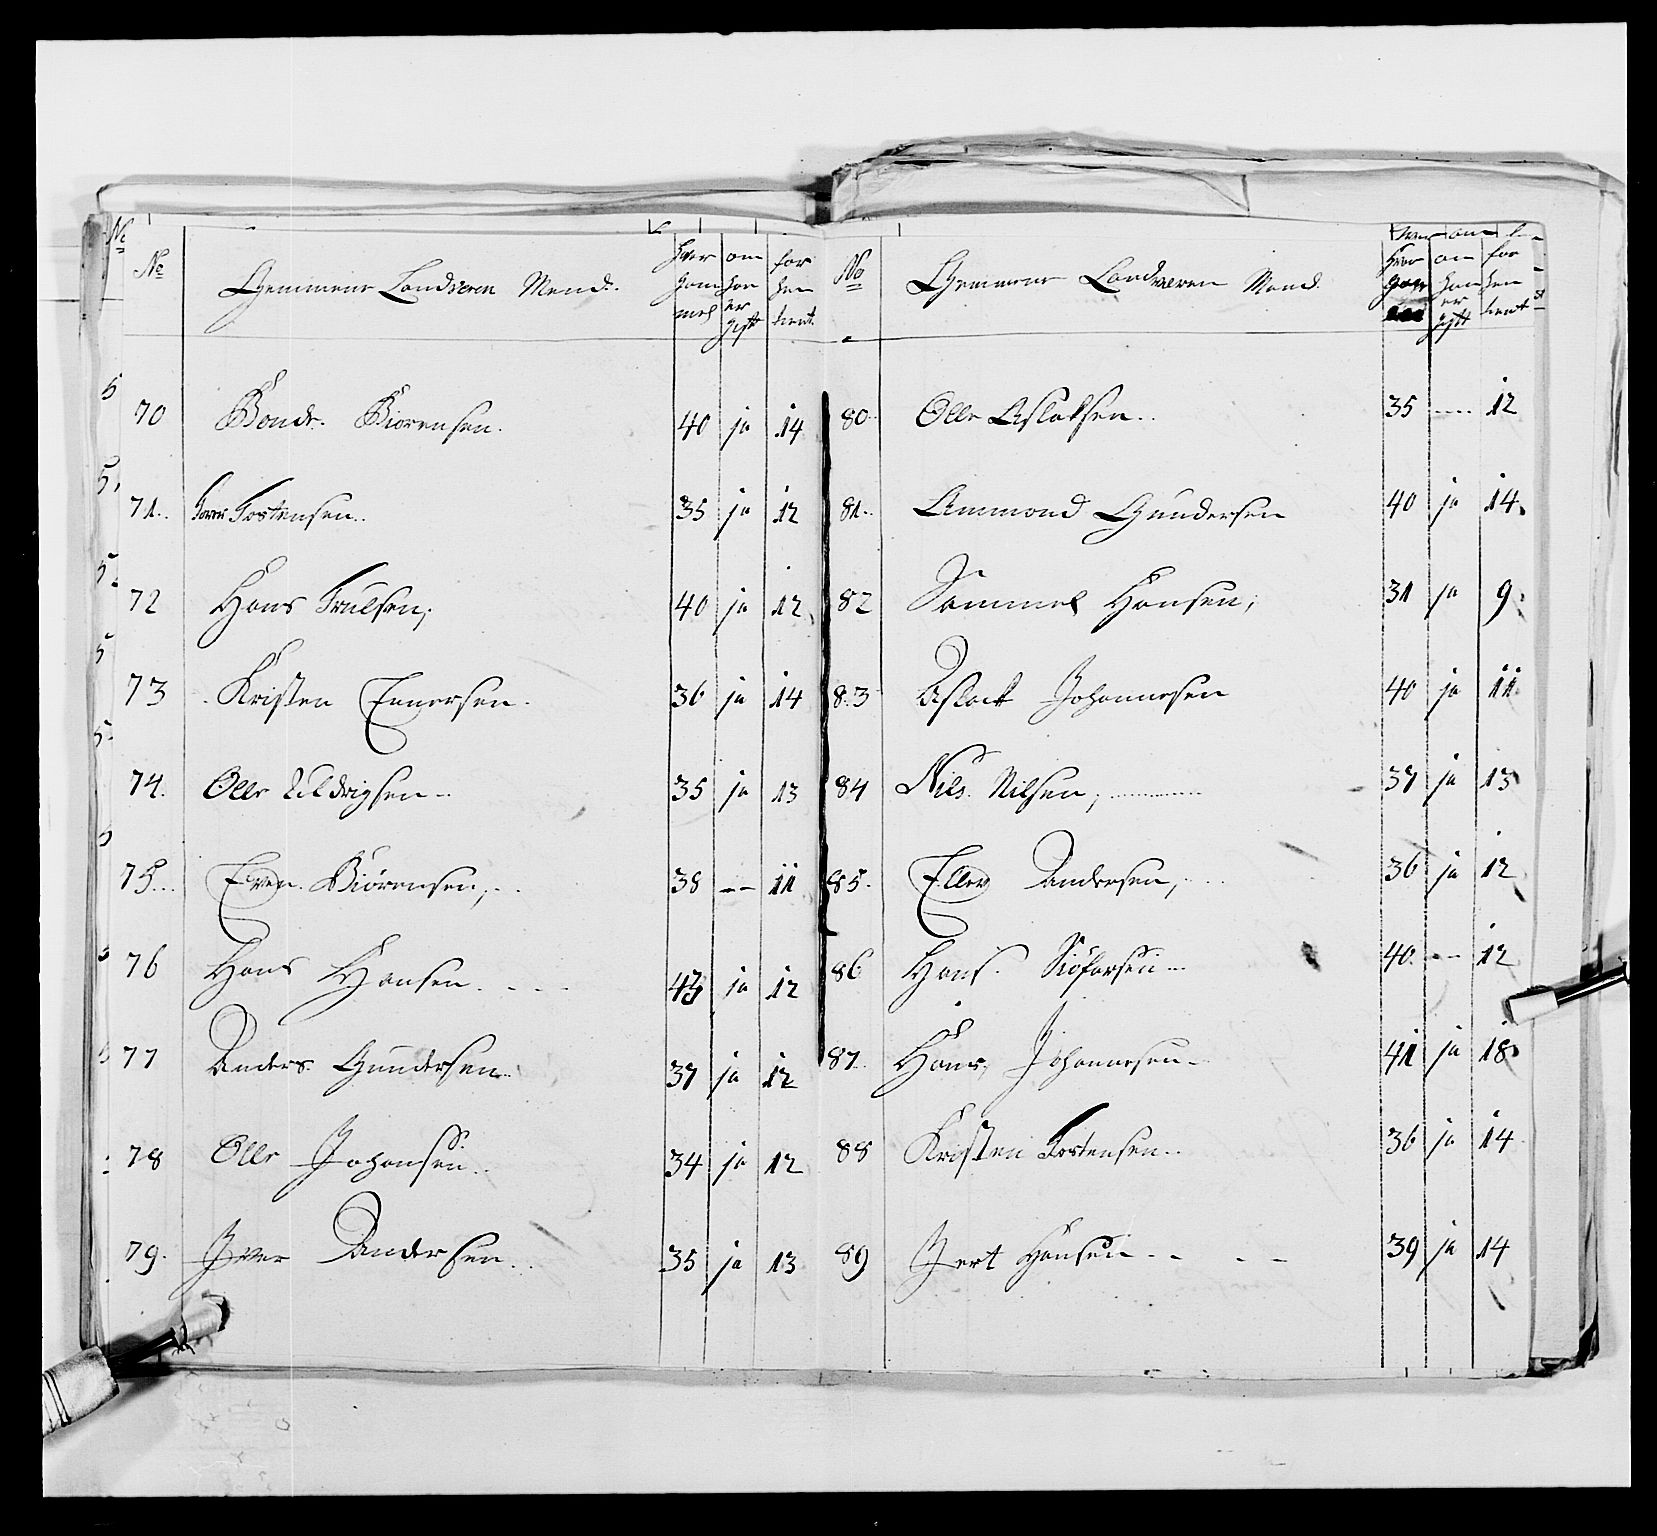 No Gemmene Landvern Mend. hvor gam mel om han er gift for hen tient
70 Bonde. Biørensen. 40 ja 14
71. Torer Tostensen.. 35 ja 12
72 Hans Trulsen; 40 ja 12
73 Kristen Ennersen. 36 ja 14
74. Olle Uldrigsen 35 ja 13
75... Even. Biørensen; 38 -- 11
76 Hans Hansen. 43 ja 12
77 Anders Gundersen 37 ja 12
78 Olle Johansen.. 34 ja 12
79. Iver Andersen.. 35 ja 13
No Gemmene Landværen Mend. hvor gam om han er gift for hen tient
80 Olle Aslaksen.. 35 ---- 12
81.. Ammond Gundersen 40 ja 14.
82 Sammel Hansen; 31 ja 9.
83 Aslack Johannesen 40 ja 11.
84 Nils. Nilsen; 37 ja 13
85. Ellev Andersen, 36 ja 12
86 Hans. Siofarsen 40. --- 12
87.. Hans, Johannesen 41 ja 18
88 Kristen Tostensen.. 36 ja 14
89 Gert Hansen -- -- 39 ja 14